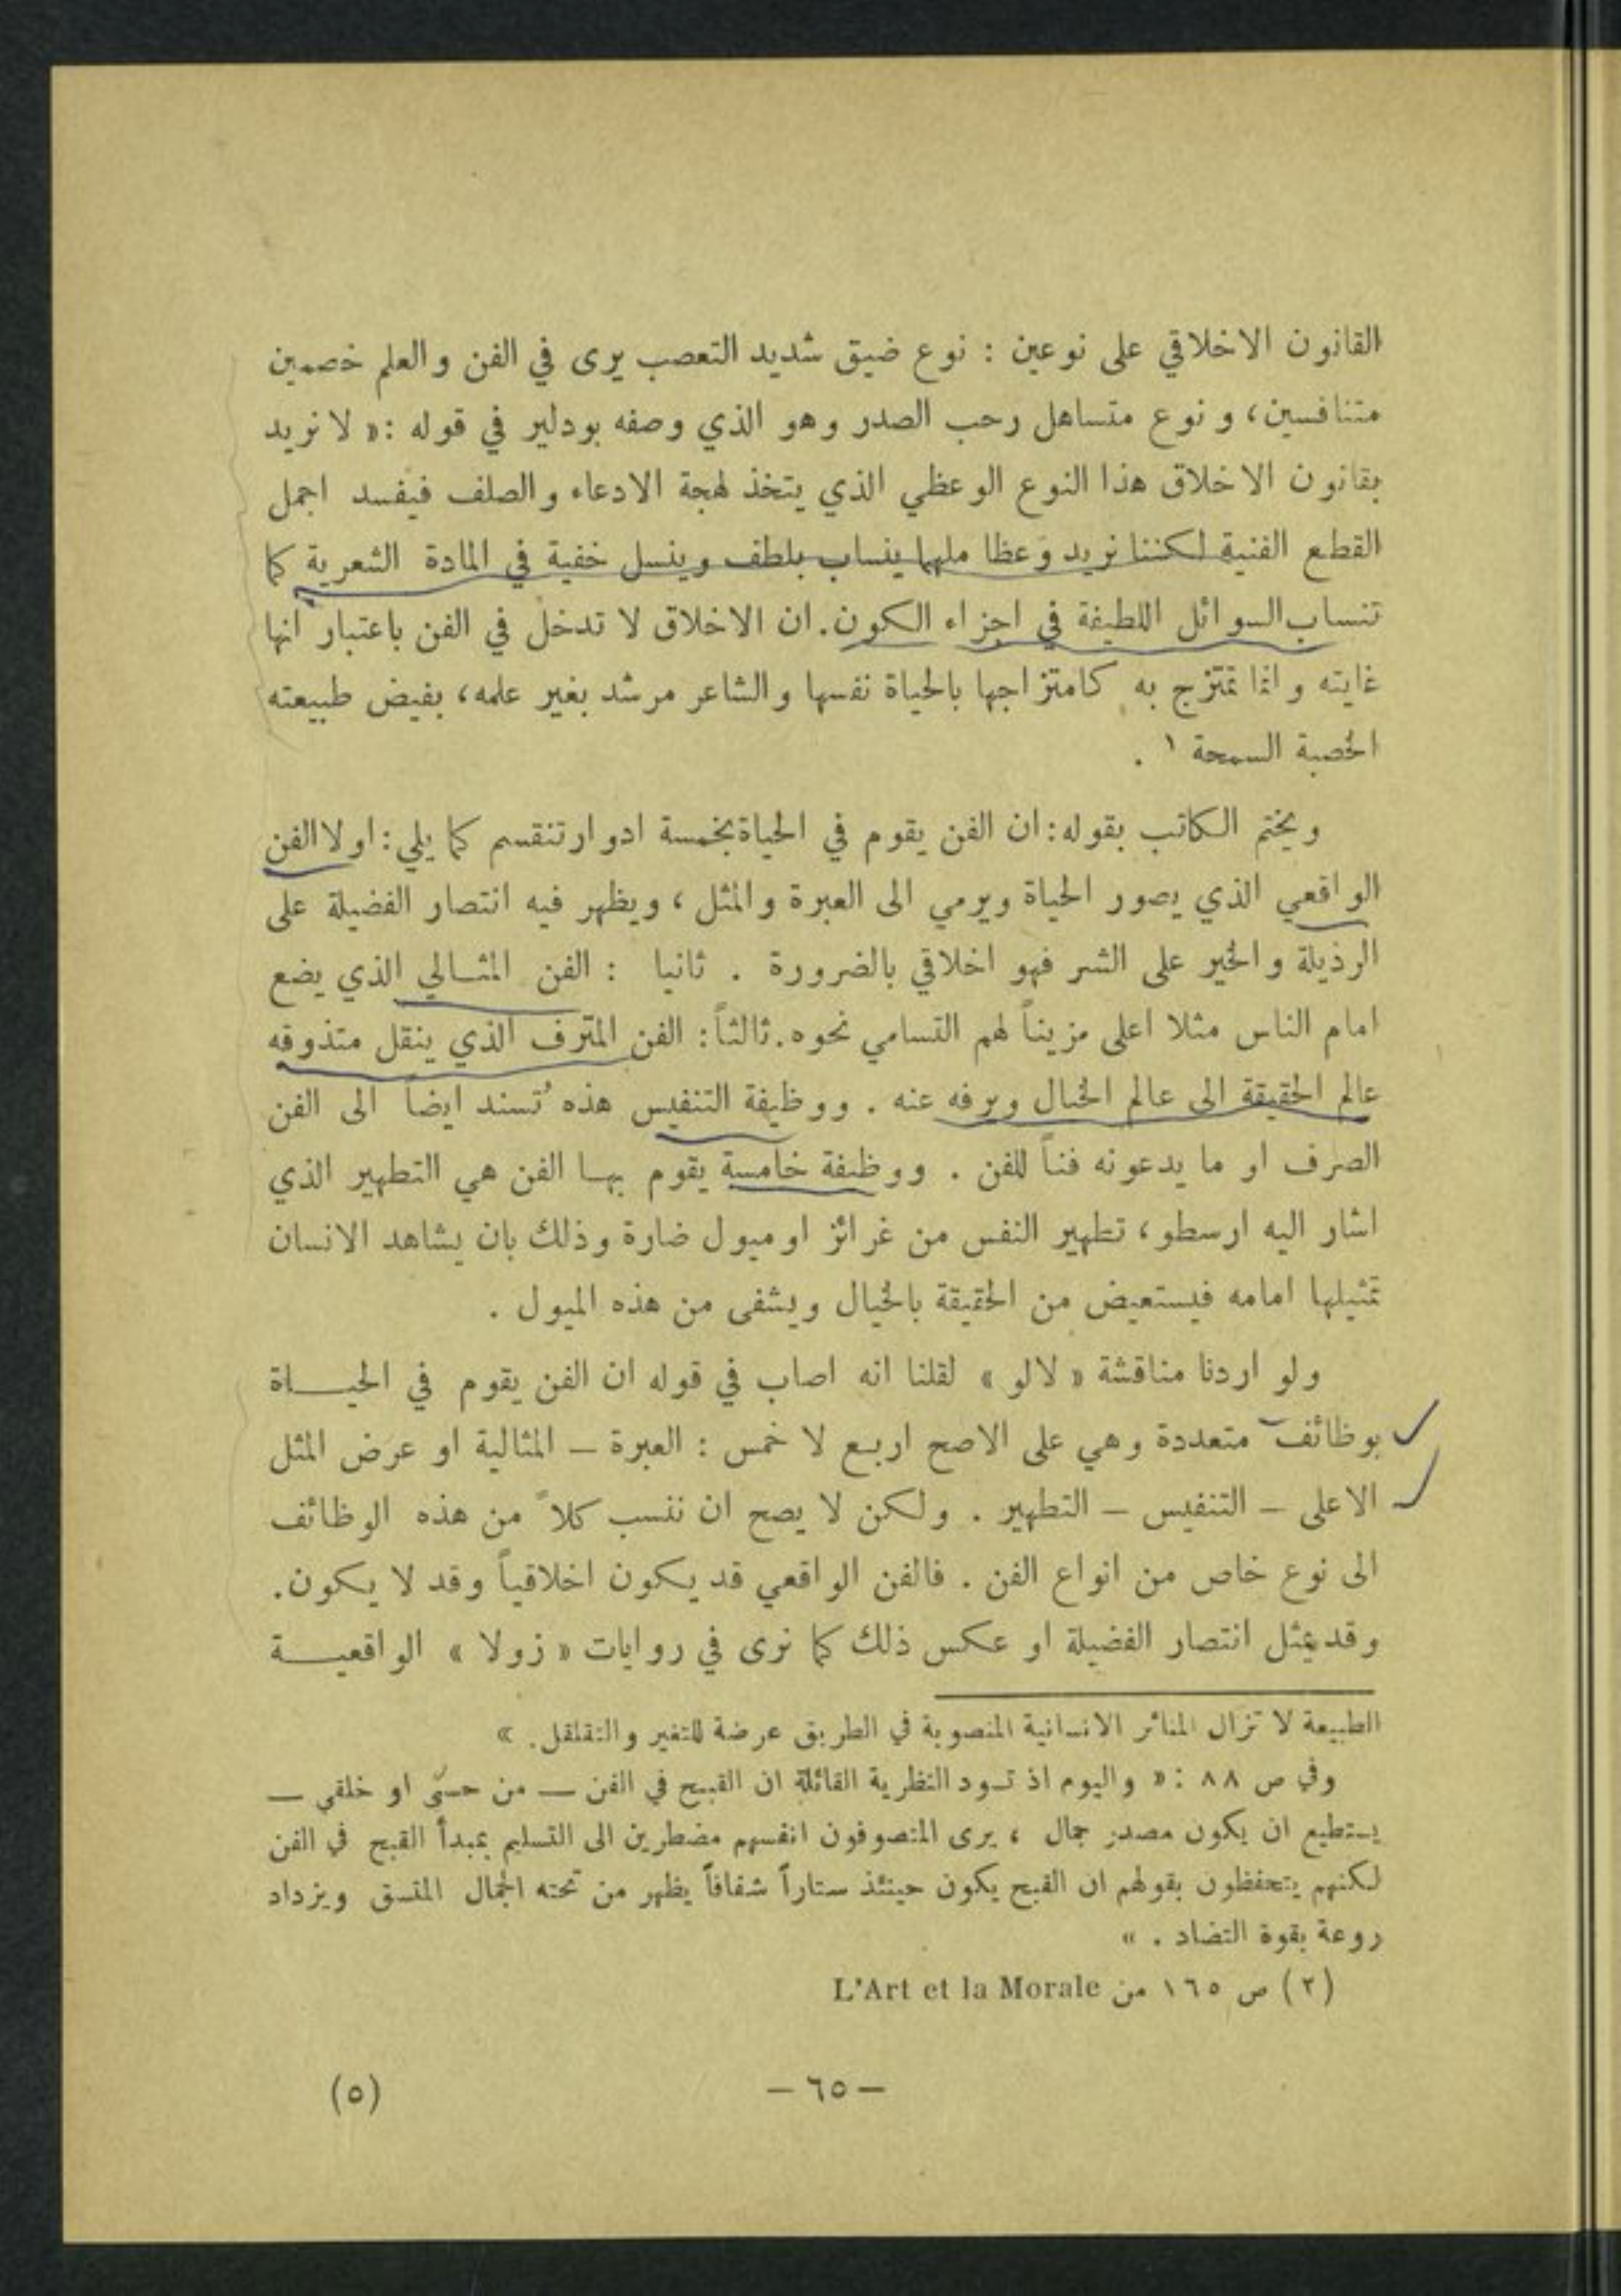 القانون الاخلاقي على نوعين : نوع ضيق شديد التعصب يرى في الفن والعلم خصمين
متنافسين، ونوع متساهل رحب الصدر وهو الذي وصفه بودلير في قوله : « لا نريد
بقانون الاخلاق هذا النوع الوعظي الذي يتخذ لهجة الادعاء والصلف فيفسد اجمل
القطع الفنية لكننا نريد وعظا ملهما ينساب بلطف وينسل خفية في المادة الشعرية كما
تنساب السوائل اللطيفة في اجزاء الكون. ان الاخلاق لا تدخل في الفن باعتبار انها
غايته وانما تمتزج به كامتزاجها بالحياة نفسها والشاعر مرشد بغير علمه، بفيض طبيعته
الخصبة السمحة ١ .
ويختم الكاتب بقوله: ان الفن يقوم في الحياة بخمسة ادوار تنقسم كما يلي: اولا الفن
الواقعي الذي يصور الحياة ويرمي الى العبرة والمثل ، ويظهر فيه انتصار الفضيلة على
الرذيلة والخير على الشر فهو اخلاقي بالضرورة . ثانيا : الفن المثالي الذي يضع
امام الناس مثلا اعلى مزيناً لهم التسامي نحوه. ثالثاً: الفن المترف الذي ينقل متذوقه
عالم الحقيقة الى عالم الخيال ويرفه عنه . ووظيفة التنفيس هذه تُسند ايضاً الى الفن
الصرف او ما يدعونه فناً للفن . ووظيفة خامسة يقوم بها الفن هي التطهير الذي
اشار اليه ارسطو، تطهير النفس من غرائز او ميول ضارة وذلك بان يشاهد الانسان
تمثيلها امامه فيستعيض من الحقيقة بالخيال ويشفى من هذه الميول .
ولو اردنا مناقشة « لالو » لقلنا انه اصاب في قوله ان الفن يقوم في الحيــاة
بوظائف متعددة وهي على الاصح اربع لا خمس : العبرة – المثالية او عرض المثل
الاعلى – التنفيس – التطهير . ولكن لا يصح ان ننسب كلاً من هذه الوظائف
الى نوع خاص من انواع الفن . فالفن الواقعي قد يكون اخلاقياً وقد لا يكون.
وقد يمثل انتصار الفضيلة او عكس ذلك كما نرى في روايات « زولا » الواقعيــة
الطبيعة لا تزال المنائر الانسانية المنصوبة في الطريق عرضة للتغير والتقلقل. »
وفي ص ٨٨ : « واليوم اذ تسود النظرية القائلة ان القبيح في الفن — من حسّي او خلقي —
يستطيع ان يكون مصدر جمال ، يرى المتصوفون انفسهم مضطرين الى التسليم بمبدأ القبح في الفن
لكنهم يتحفظون بقولهم ان القبح يكون حينئذ ستاراً شفافاً يظهر من تحته الجمال المتسق ويزداد
روعة بقوة التضاد . »
(٢) ص ١٦٥ من L'Art et la Morale
– ٦٥ –
(٥)